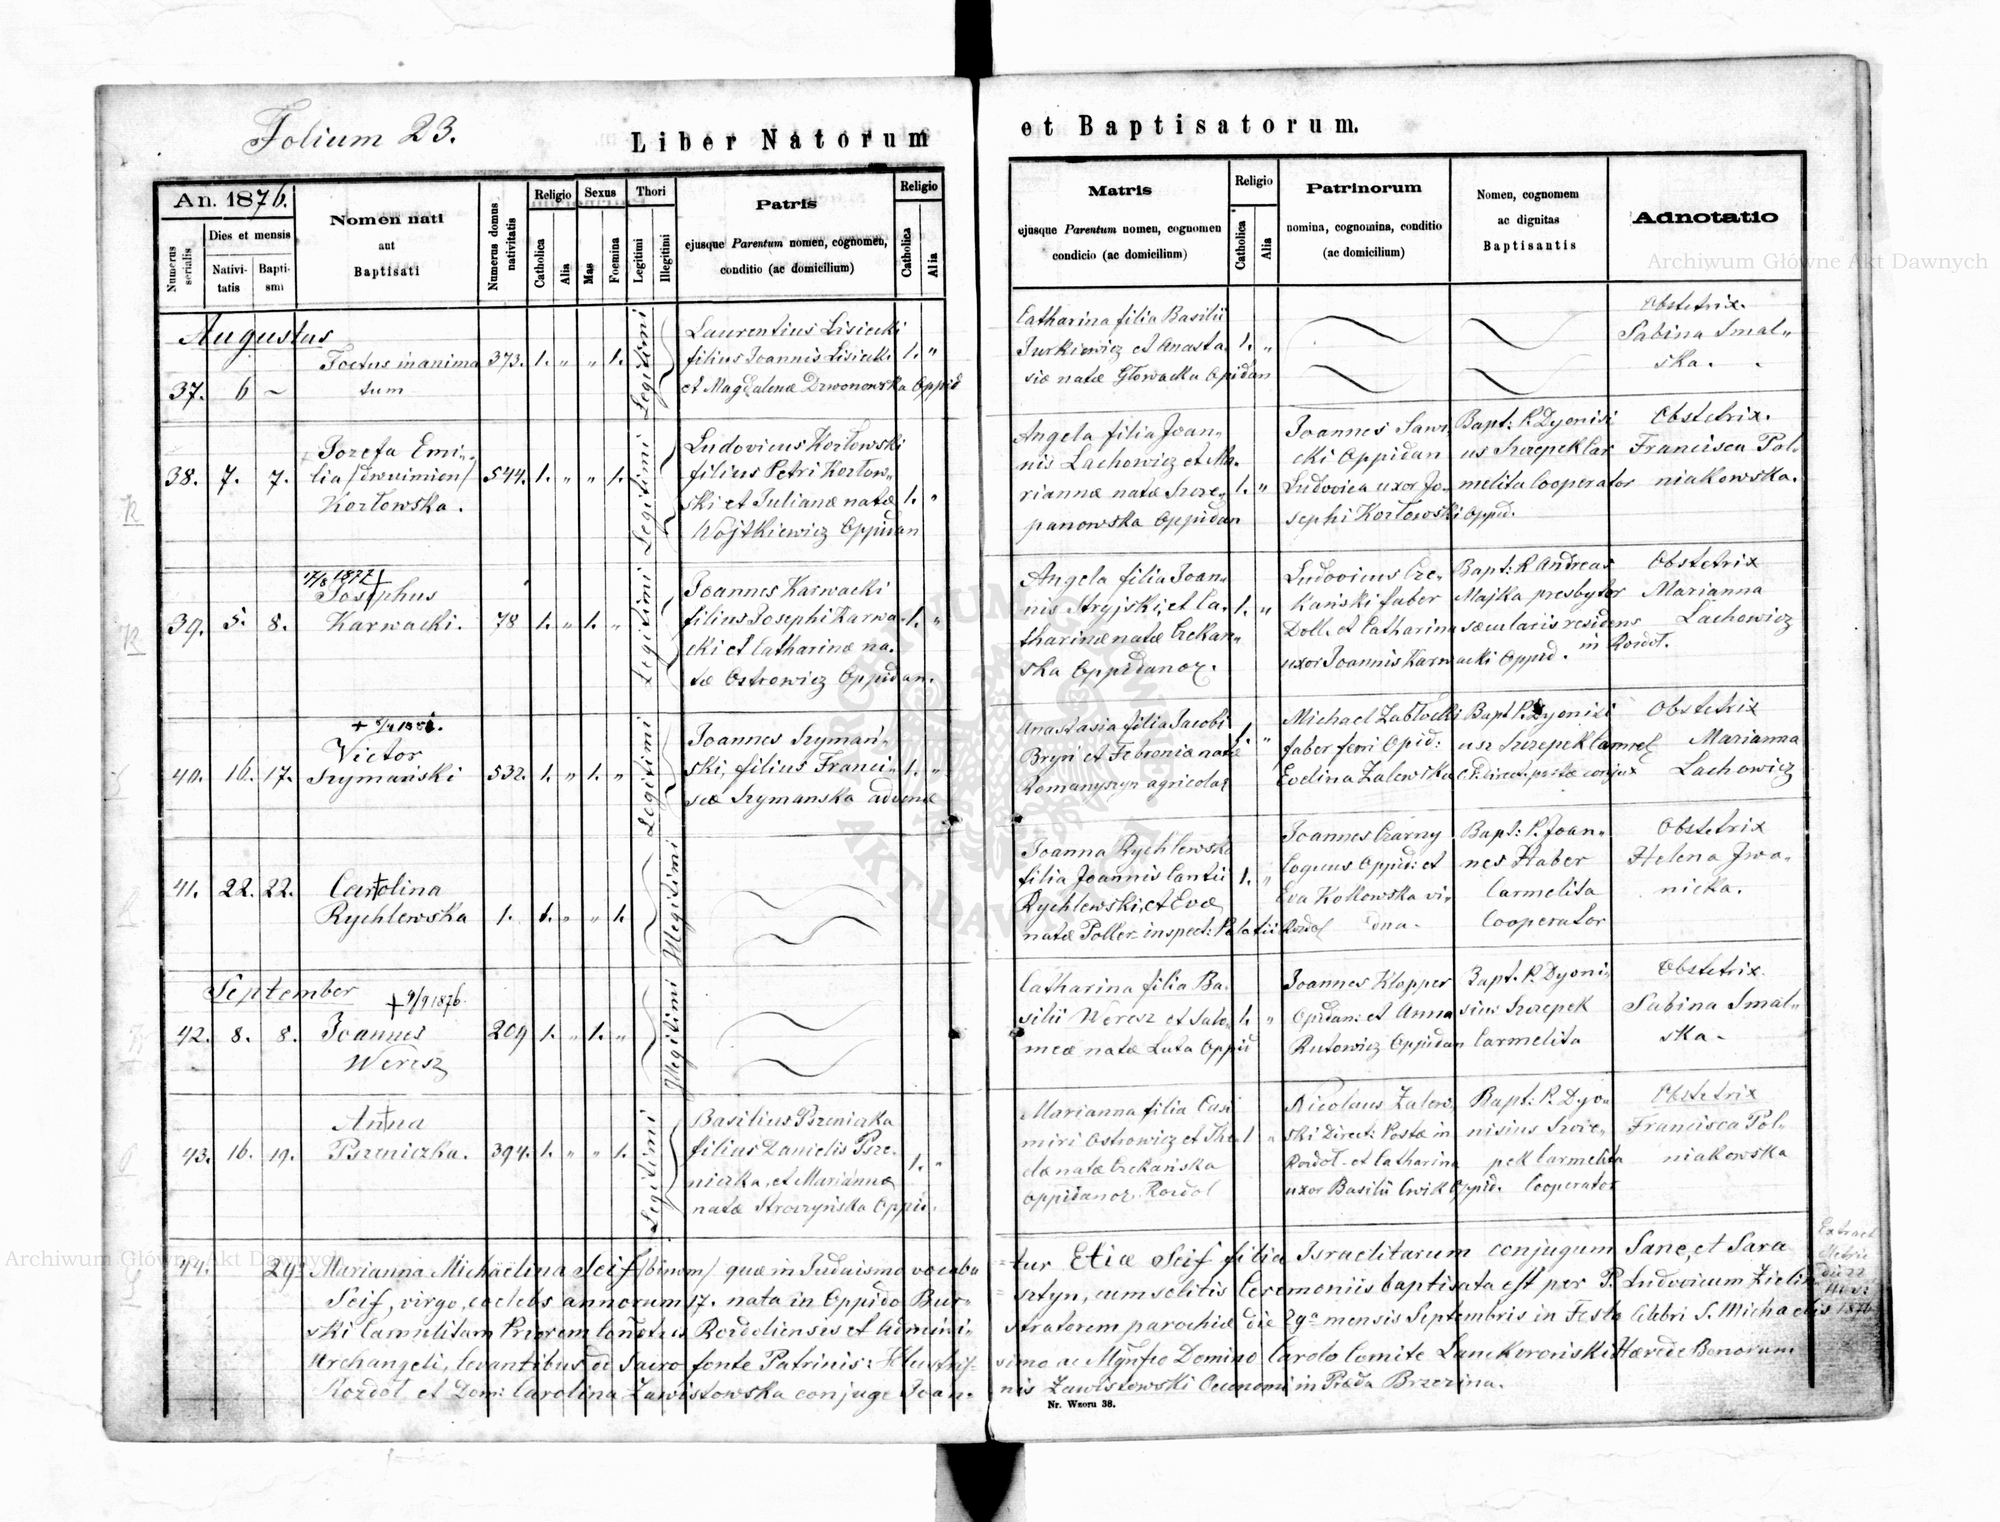 Folium 23.
Liber Natorum
et Baptisatorum.
An. 1876.
Numerus serialis
Dies et mensis
Nativitatis
Baptismi
Nomen nati
aut
Baptisati
Numerus domus nativitatis
Religio
Catholica
Alia
Sexus
Mas
Foemina
Thori
Legitimi
Illegitimi
Patris
ejusque Parentum nomen, cognomen,
conditio (ac domicilium)
Religio
Catholica
Alia
Matris
ejusque Parentum nomen, cognomen
condicio (ac domicilium)
Religio
Catholica
Alia
Patrinorum
nomina, cognomina, conditio
(ac domicilium)
Nomen, cognomem
ac dignitas
Baptisantis
Adnotatio
Archiwum Główne Akt Dawnych
Augustus
37. 6 ~
Foetus inanima
tum
373. 1. " " 1.
Legitimi
Laurentius Lisiecki
filius Joannis Lisiecki
et Magdalenæ Dzwonowska Oppid
1. "
Catharina filia Basilii
Jurkiewicz et Anasta.
siæ natæ Głowacka Oppidan
1. "
Obstetrix.
Sabina Smal"
ska.
38. 7. 7.
Jozefa Emi".
lia /dwuimien/
Kozłowska.
544. 1. " " 1.
Legitimi
Ludovicus Kozłowski
filius Petri Kozłow"
ski et Julianæ natæ
Wojtkiewicz Oppidan
1. "
Angela filia Joan"
nis Lachowicz et Ma.
riannæ natæ Szcze"
panowska Oppidan
1. "
Joannes Sawi.
cki Oppidan
Ludovica uxor Jo"
sephi Kozłowski Oppid.
Bapt: P. Dyonisi
us Szczepek Car
melita Cooperator
Obstetrix.
Francisca Pol.
niakowska.
39. 5. 8.
17/8 1877 †
Josephus
Karwacki.
78 1. " 1. "
Legitimi
Joannes Karwacki
filius Josephi Karwa.
cki et Catharinæ na.
tæ Ostrowicz Oppidan.
1. "
Angela filia Joan"
nis Stryjski, et Ca.
tharinæ natæ Czekan"
ska Oppidanor.
1. "
Ludovicus Cze"
kański faber
Doll. et Catharina
uxor Joannis Karwacki Oppid.
Bapt: R Andreas
Majka presbyter
sæcularis residens
in Rozdoł.
Obstetrix
Marianna
Lachowicz
40. 16. 17.
Victor
Szymański
532. 1. " 1. "
Legitimi
Joannes Szymań"
ski, filius Franci"
scæ Szymanska advenæ
1. "
Anastasia filia Jacobi
Bryn et Febroniæ natæ
Romanyszyn agricolar
1. "
Michael Zabłocki
faber ferri Opid:
Evelina Zalewska
Bapt P. Dyonisi
Obstetrix
Marianna
Lachowicz
41. 22. 22.
Carolina
Rychlewska
1. 1. " " 1.
Illegitimi
Joanna Rychlewska
filia Joannis Cantii
Rychlewski, et Evæ
natæ Poller inspect: Palatii Rozdoł
1. "
Joannes Czarny
Coquus Oppid: et
Eva Kotkowska vi"
dua.
Bapt: P. Joan"
nes Haber
Carmelita
Cooperator
Obstetrix
Helena Jwa"
nicka.
September
42. 8. 8.
+ 9/9 1876.
Joannes
Weresz
209 1. " 1. "
Illegitimi
Catharina filia Ba.
silii Weresz et Salo"
meæ natæ Luta Oppid
1. "
Joannes Klopper
Opidan: et Anna
Rutowicz Oppidan
Bapt. P. Dyoni"
sius Szczepek
Carmelita
Obstetrix.
Sabina Smal"
ska.
43. 16. 19.
Anna
Pszeniczka.
394. 1. " " 1.
Legitimi
Basilius Pszeniczka
filius Danielis Psze"
niczka, et Mariannæ
natæ Stroczyńska Oppid.
1. "
Marianna filia Casi
miri Ostrowicz et The"
clæ natæ Czekańska
oppidanor. Rozdoł
1 "
Nicolaus Zalew"
ski Direct: Postæ in
Rozdoł. et Catharina
uxor Basilii Cwik Oppid.
Bapt: P. Dyo"
nisius Szcze"
pek Carmelita
Cooperator
Obstetrix
Francisca Pol"
niakowska
44. 29a Marianna Michaelina Seif /binom/ quæ in Judaismo vocaba=tur Etiæ Seif filia Israelitarum conjugum Sane, et Sara
Seif, virgo, coelebs annorum 17. nata in Oppido Bur=sztyn, cum solitis Ceremoniis baptisata est per P. Ludovicum Zielin
ski Carmelitam Priorem Conventus Rozdoliensis et Admini"stratorem parochiæ die 29a mensis Septembris in Festo Celebri S. Michaelis
Archangeli, levantibus de Sacro fonte Patrinis: Illustris=simo ac Mgnfco Domino Carolo Comite Lanckoroński Hærede Bonorum
Rozdoł et Dom: Carolina Zawistowska conjuge Joan"nis Zawistowski Oeconomi in Præda Brzezina.
Extract
1876
Nr. Wzoru 38.
Archiwum Główne Akt Dawnych